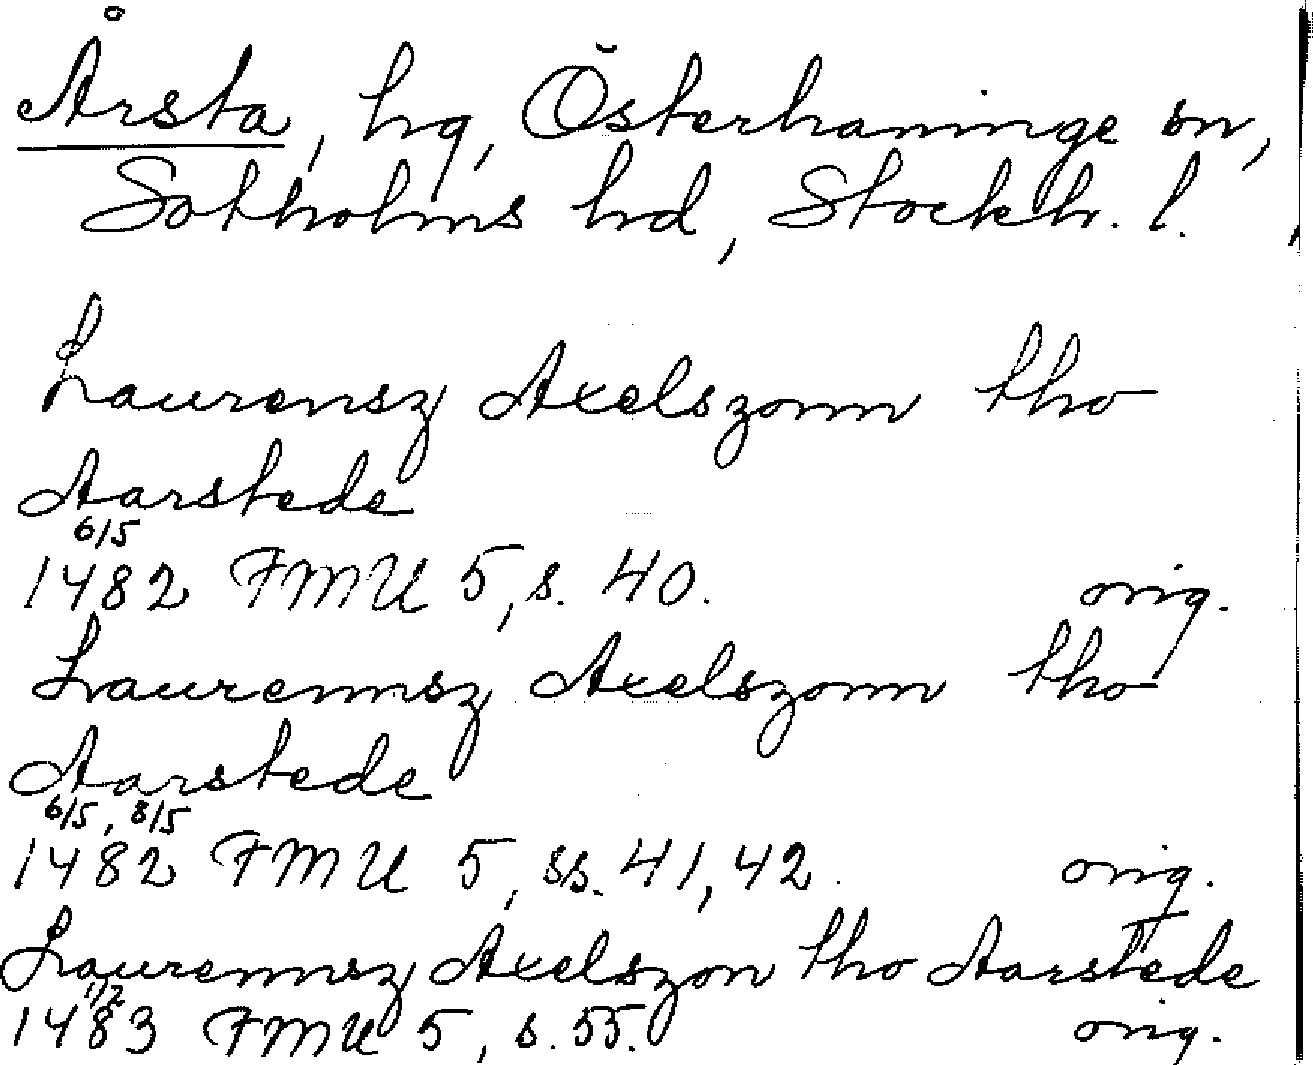 Årsta, hg, Österhaninge sn,
Sotholms hd, Stockh. l.
Laurensz Axelszonn tho
Aarstede
6/5
1482 FMU 5, s. 40. orig.
Laurennsz Axelszonn tho
Aarstede
6/5, 8/5
1482 FMU 5, ss. 41, 42. orig.
Laurennsz Axelszon tho Aarstede
1/2
1483 FMU 5, s. 55. orig.